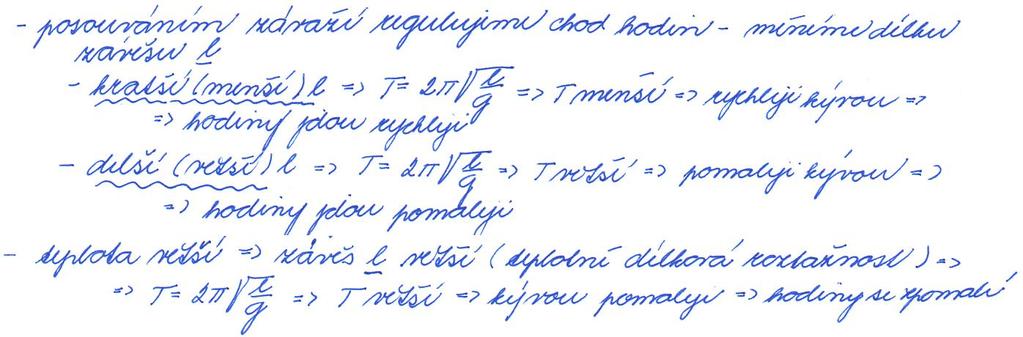 - posouváním záváží regulujeme chod hodin - měníme délku
závěsu l
- kratší (menší) l => T = 2π√(l/g) => T menší => rychleji kývou =>
=> hodiny jdou rychleji
- delší (větší) l => T = 2π√(l/g) => T větší => pomaleji kývou =>
=> hodiny jdou pomaleji
- teplota větší => závěs l větší (teplotní délková roztažnost) =>
=> T = 2π√(l/g) => T větší => kývou pomaleji => hodiny se zpomalí